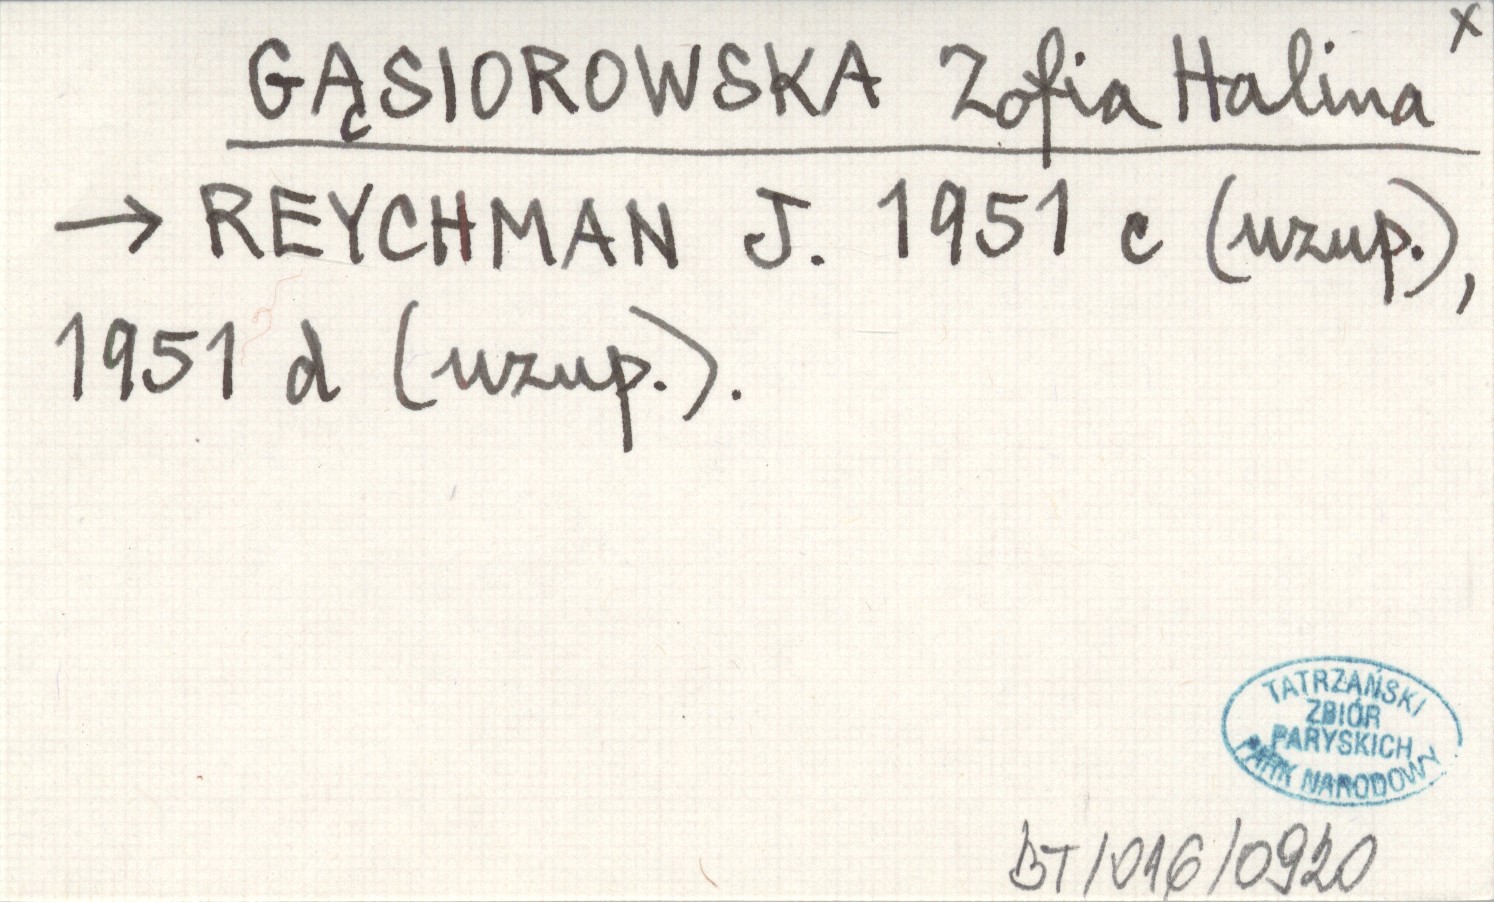 GĄSIOROWSKA Zofia Halina x
→ REYCHMAN J. 1951 c (uzup.),
1951 d (uzup.).
TATRZAŃSKI
ZBIÓR
PARYSKICH
PARK NARODOWY
BT/016/0920